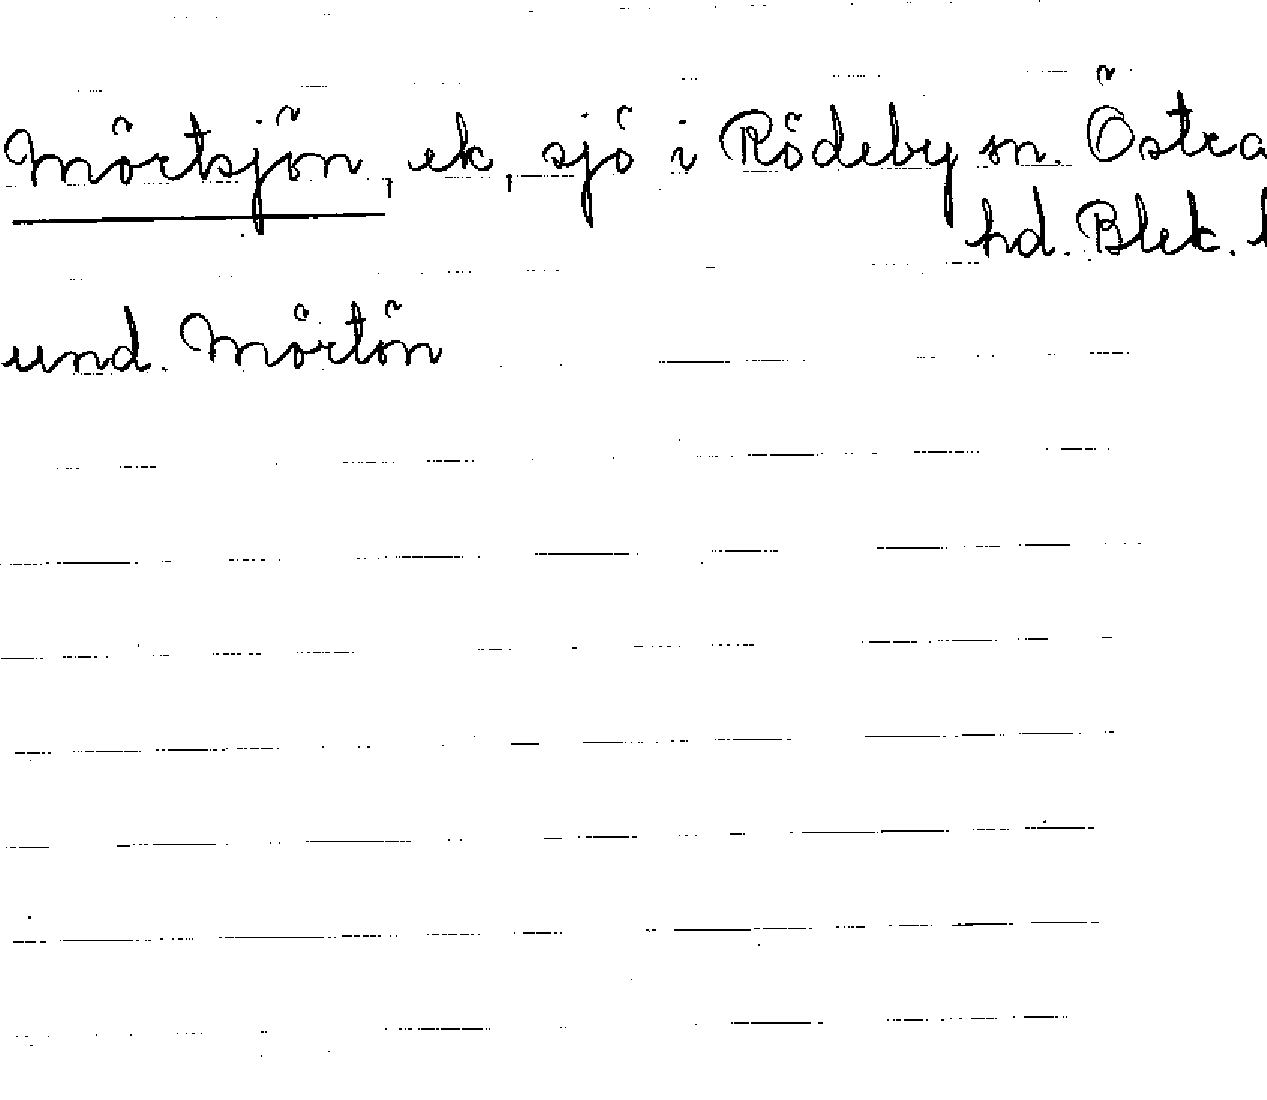 Mörtsjön, ek, sjö i Rödeby sn. Östra
hd. Blek. l
und. Mörtön